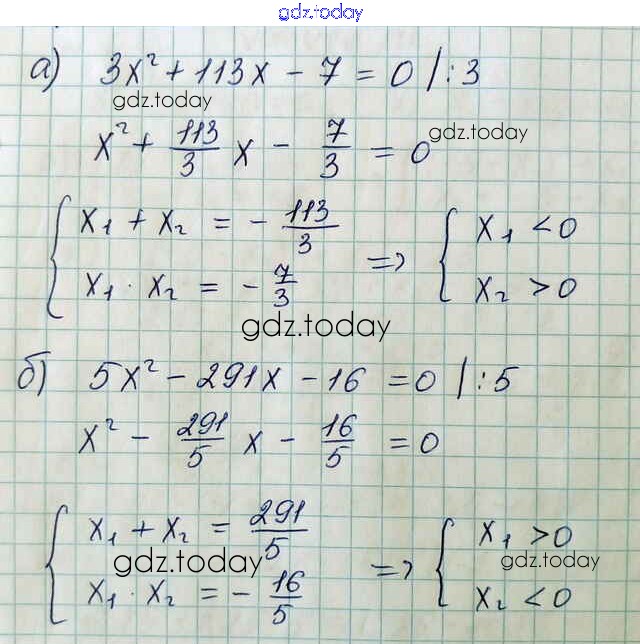 gdz.today
а) 3x² + 113x - 7 = 0 | : 3
gdz.today
x² + 113/3 x - 7/3 = 0
gdz.today
{ x₁ + x₂ = - 113/3
x₁ · x₂ = - 7/3
=> { x₁ < 0
x₂ > 0
gdz.today
б) 5x² - 291x - 16 = 0 | : 5
x² - 291/5 x - 16/5 = 0
{ x₁ + x₂ = 291/5
gdz.today
x₁ · x₂ = - 16/5
=> { x₁ > 0
gdz.today
x₂ < 0